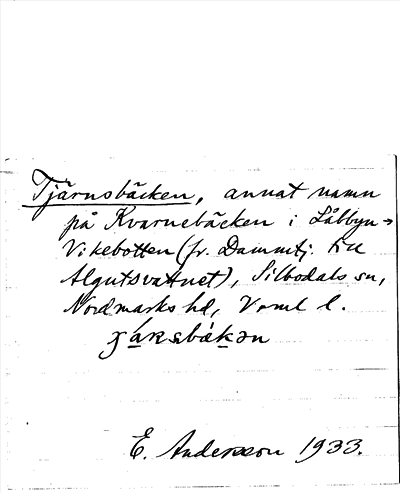 Tjärnsbäcken, annat namn
på Kvarnebäcken i Låbbyn -
Vikebotten (fr. Dammtj. till
Algutsvattnet), Silbodals sn,
Nordmarks hd, Värml l.
E. Andersson 1933.